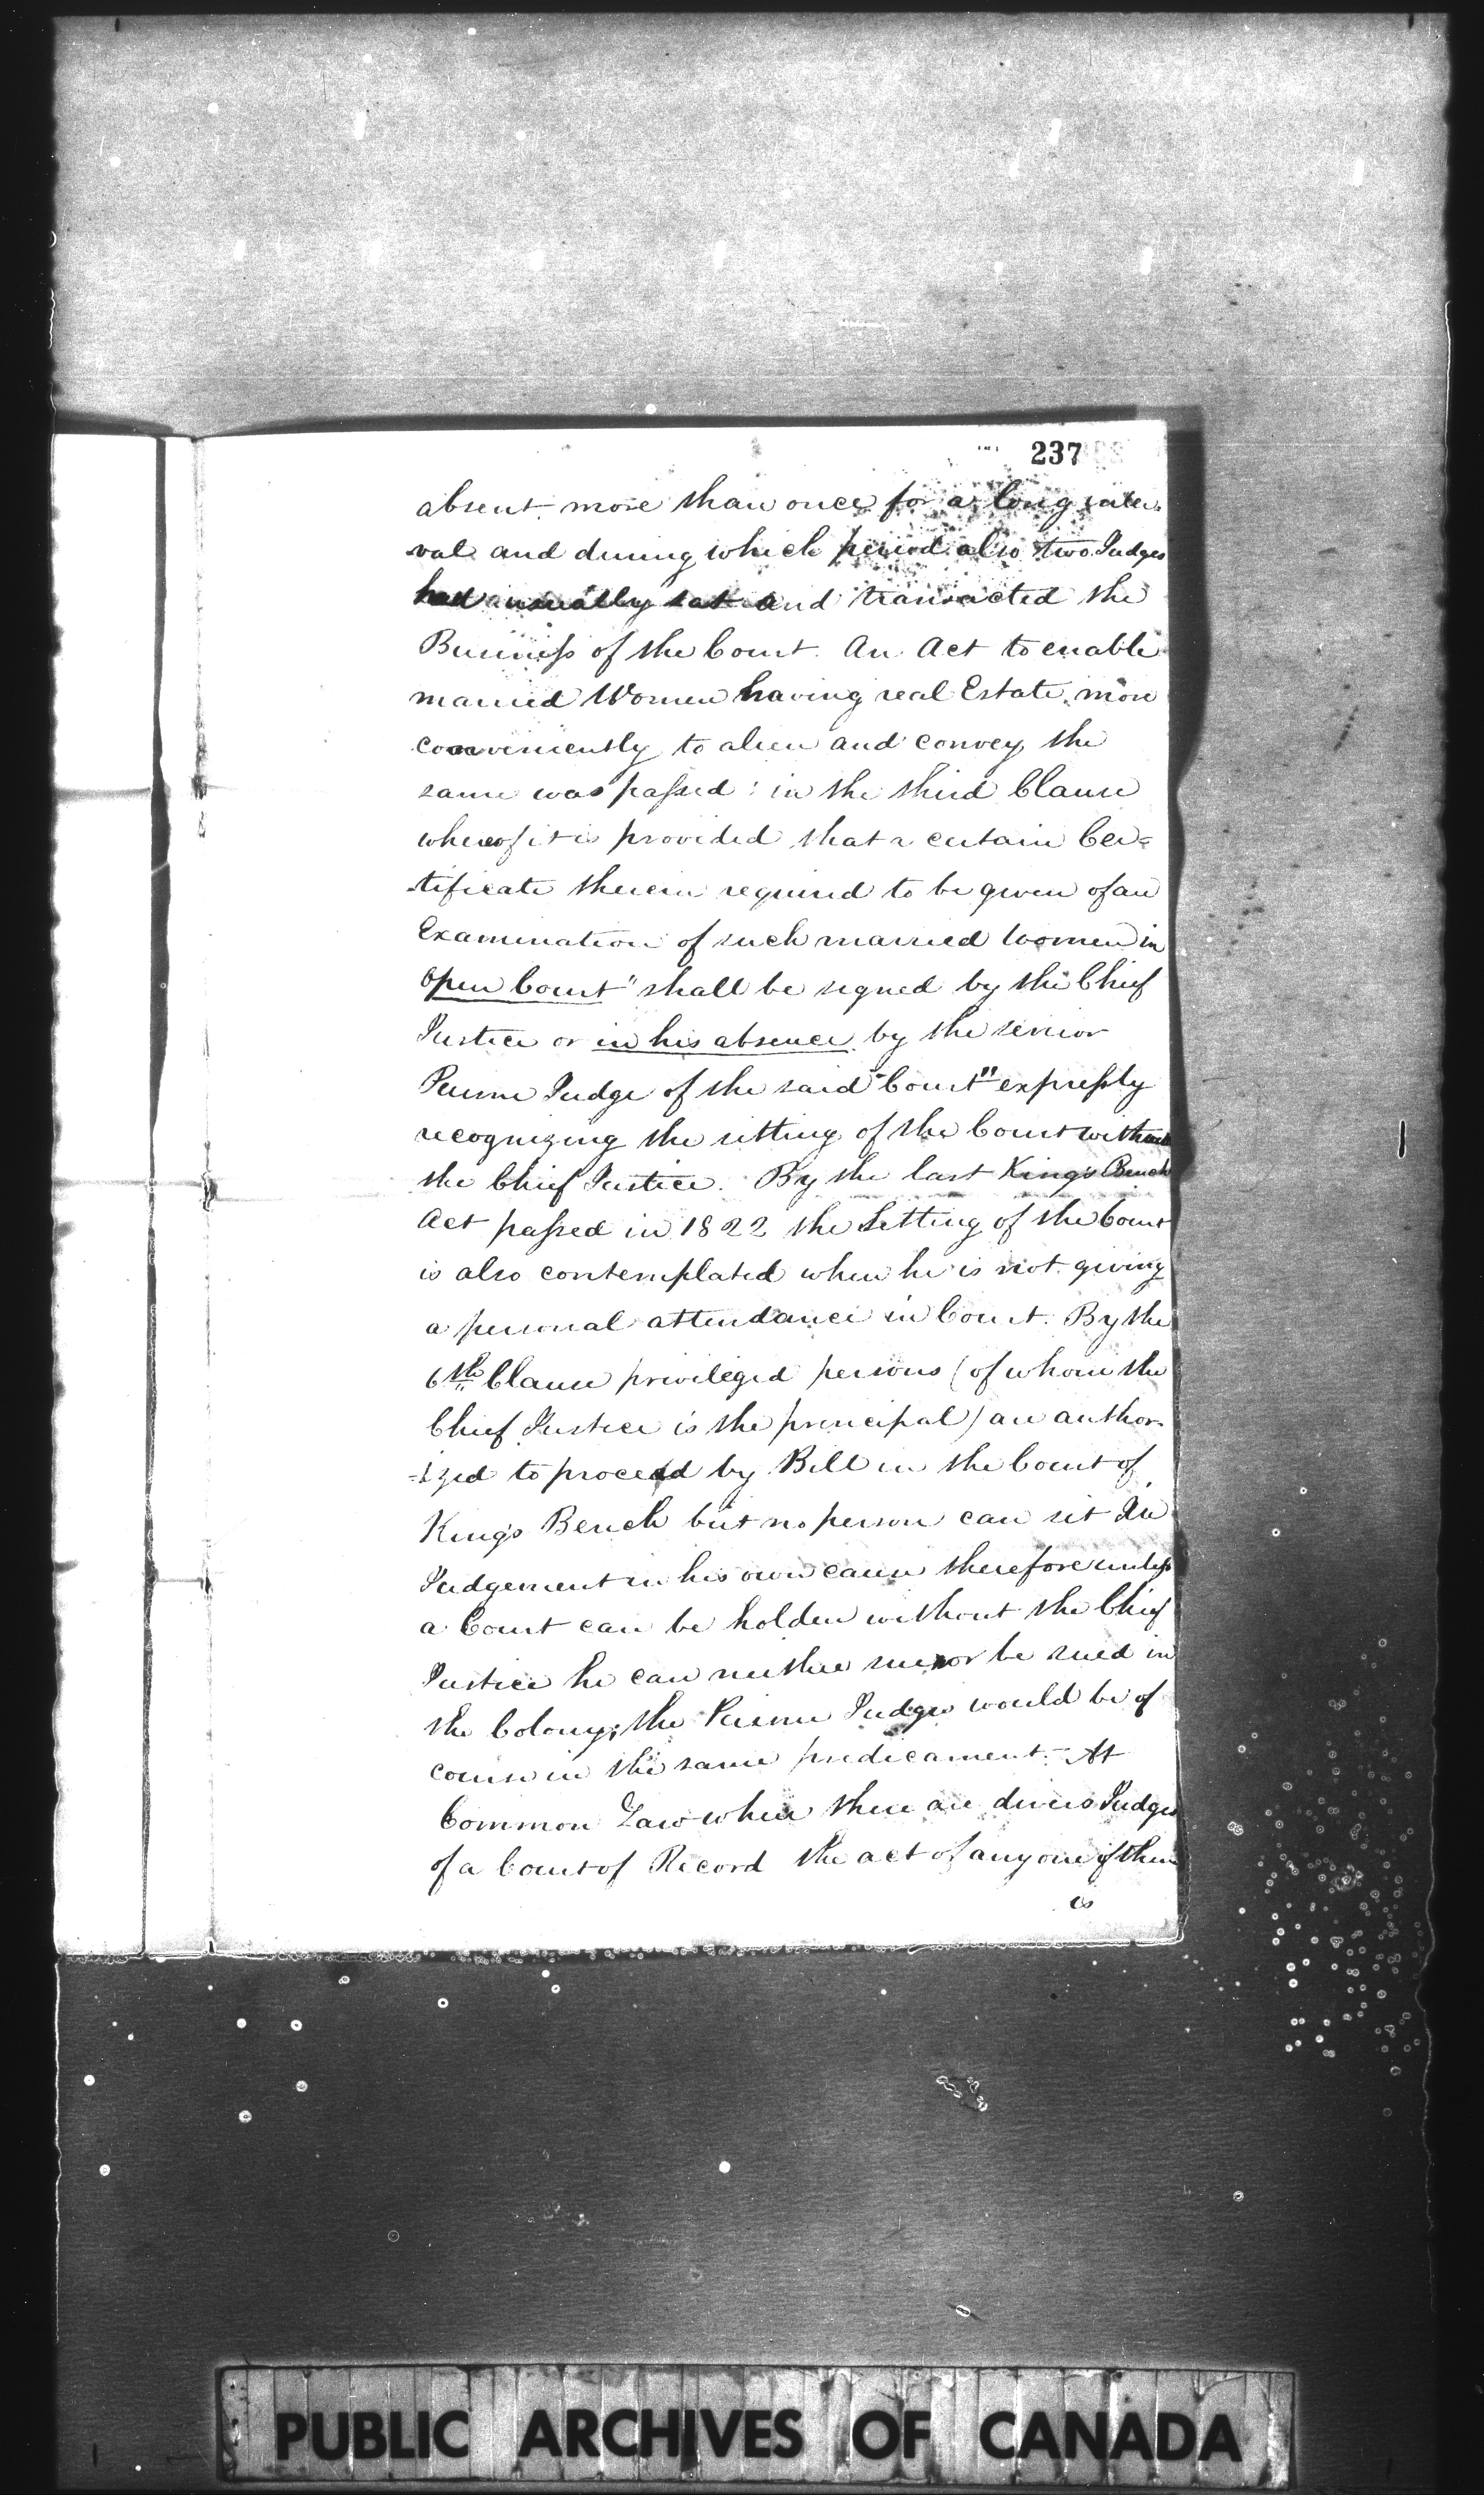 237
absent more than once for a long inter-
val and during which period also two Judges
had usually sat and transacted the
Business of the Court. An Act to enable
married Women having real Estate more
conveniently to alien and convey the
same was passed: in the third Clause
whereof it is provided that a certain Cer=
-tificate therein required to be given of an
Examination of such married women in
open Court" shall be signed by the Chief
Justice or in his absence by the senior
Puisne Judge of the said Court" expressly
recognizing the sitting of the Court without
the Chief Justice. By the last King's Bench
Act passed in 1822 the Sitting of the Court
is also contemplated when he is not giving
a personal attendance in Court. By the
6th Clause privileged persons (of whom the
Chief Justice is the principal) are author-
-ized to proceed by Bill in the Court of
King's Bench but no person can sit in
Judgement in his own cause therefore unless
a Court can be holden without the Chief
Justice he can neither sue nor be sued in
the Colony; the Puisne Judges would be of
course in the same predicament.- At
Common Law where there are divers Judges
of a Court of Record the act of any one of them
is
PUBLIC ARCHIVES OF CANADA